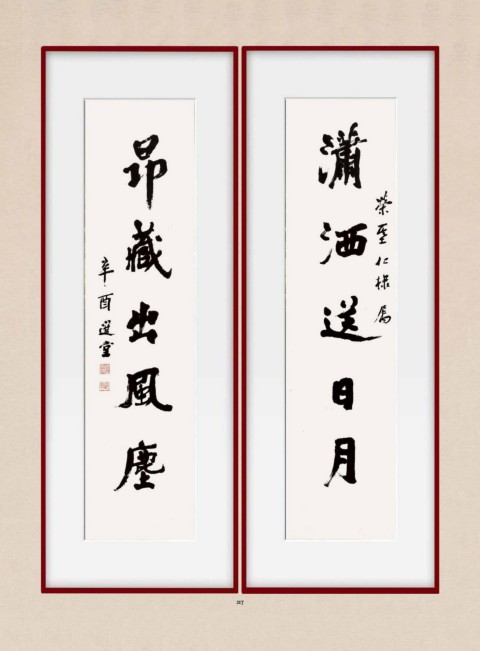 瀟洒送日月
榮 仁棣屬
昂藏出風塵
辛酉選堂